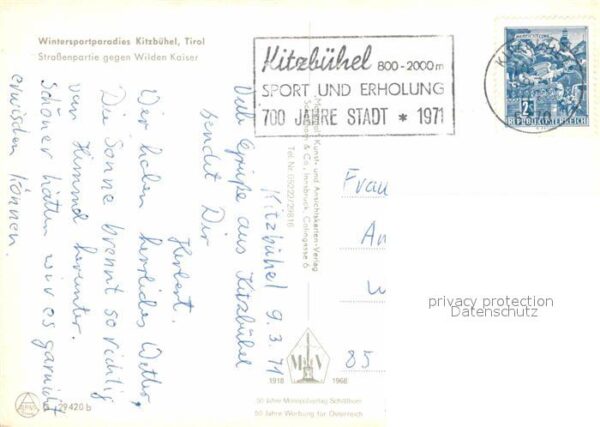 Wintersportparadies Kitzbühel, Tirol
Straßenpartie gegen Wilden Kaiser
Kitzbühel 800-2000m
SPORT UND ERHOLUNG
700 JAHRE STADT * 1971
2 S
REPUBLIK ÖSTERREICH
Kitzbühel 9.3.71
Viele Grüße aus Kitzbühel
sendet Dir
Herbert.
Wir haben herrliches Wetter,
Die Sonne brennt so richtig
vom Himmel herunter.
Schöner hätten wir es garnicht
erwischen können.
Monopol Kunst- und Ansichtskarten-Verlag
& Co., Innsbruck, Colingasse 6
Frau
An
W
85
privacy protection
Datenschutz
1918
1968
50 Jahre Monopolverlag Schöllhorn
50 Jahre Werbung für Österreich
29420 b